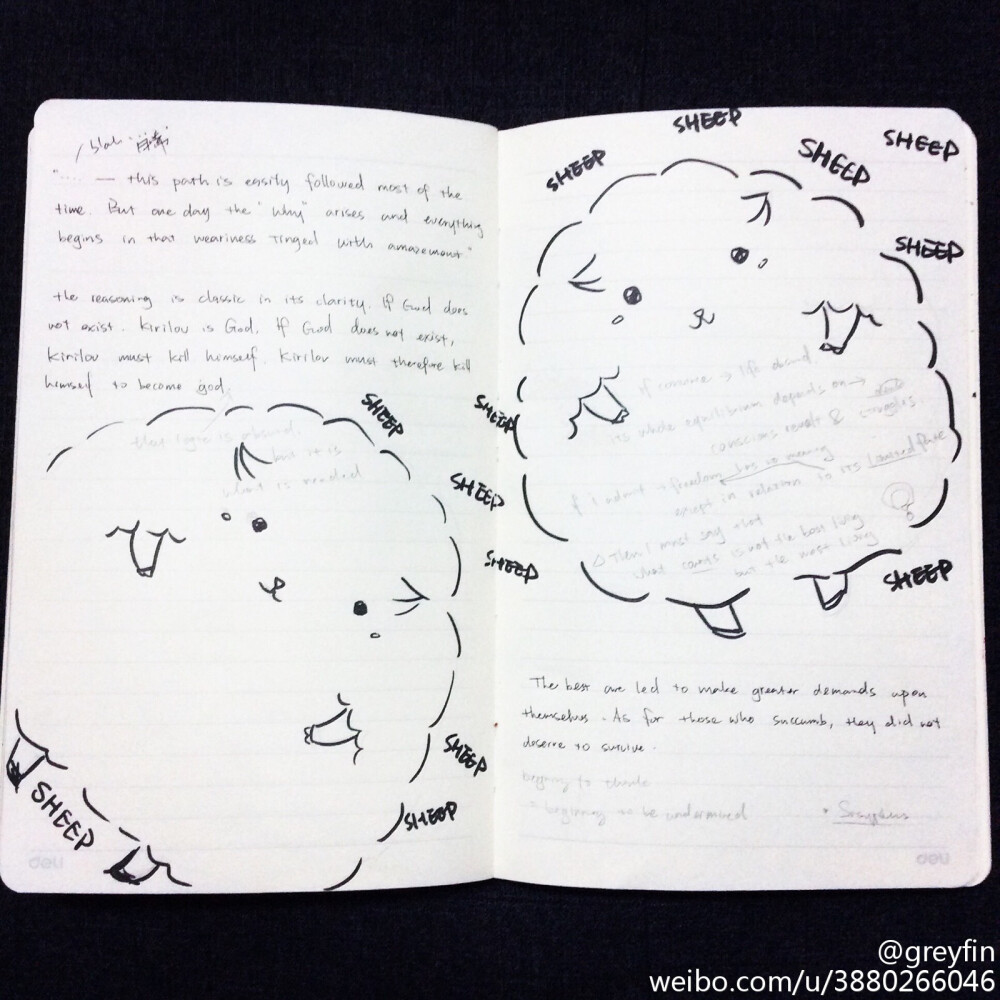 ".... — this path is easily followed most of the
time. But one day the "why" arises and everything
begins in that weariness tinged with amazement"
the reasoning is classic in its clarity. If God does
not exist. Kirilov is God. If God does not exist,
Kirilov must kill himself. Kirilov must therefore kill
himself to become god.
that logic is absurd.
but it is
what is needed
SHEEP
SHEEP
SHEEP
SHEEP
SHEEP
SHEEP
deli
SHEEP
SHEEP
SHEEP
SHEEP
SHEEP
SHEEP
If convince → life absurd,
its whole equilibrium depends on →
conscious revolt & struggles.
If I admit → freedom has no meaning
except in relation to its limited fate
△ Then I must say that
what counts is not the best living
but the most living
SHEEP
The best are led to make greater demands upon
themselves. As for those who succumb, they did not
deserve to survive.
beginning to think
= beginning to be undermined
• Sisyphus
deli
@greyfin
weibo.com/u/3880266046